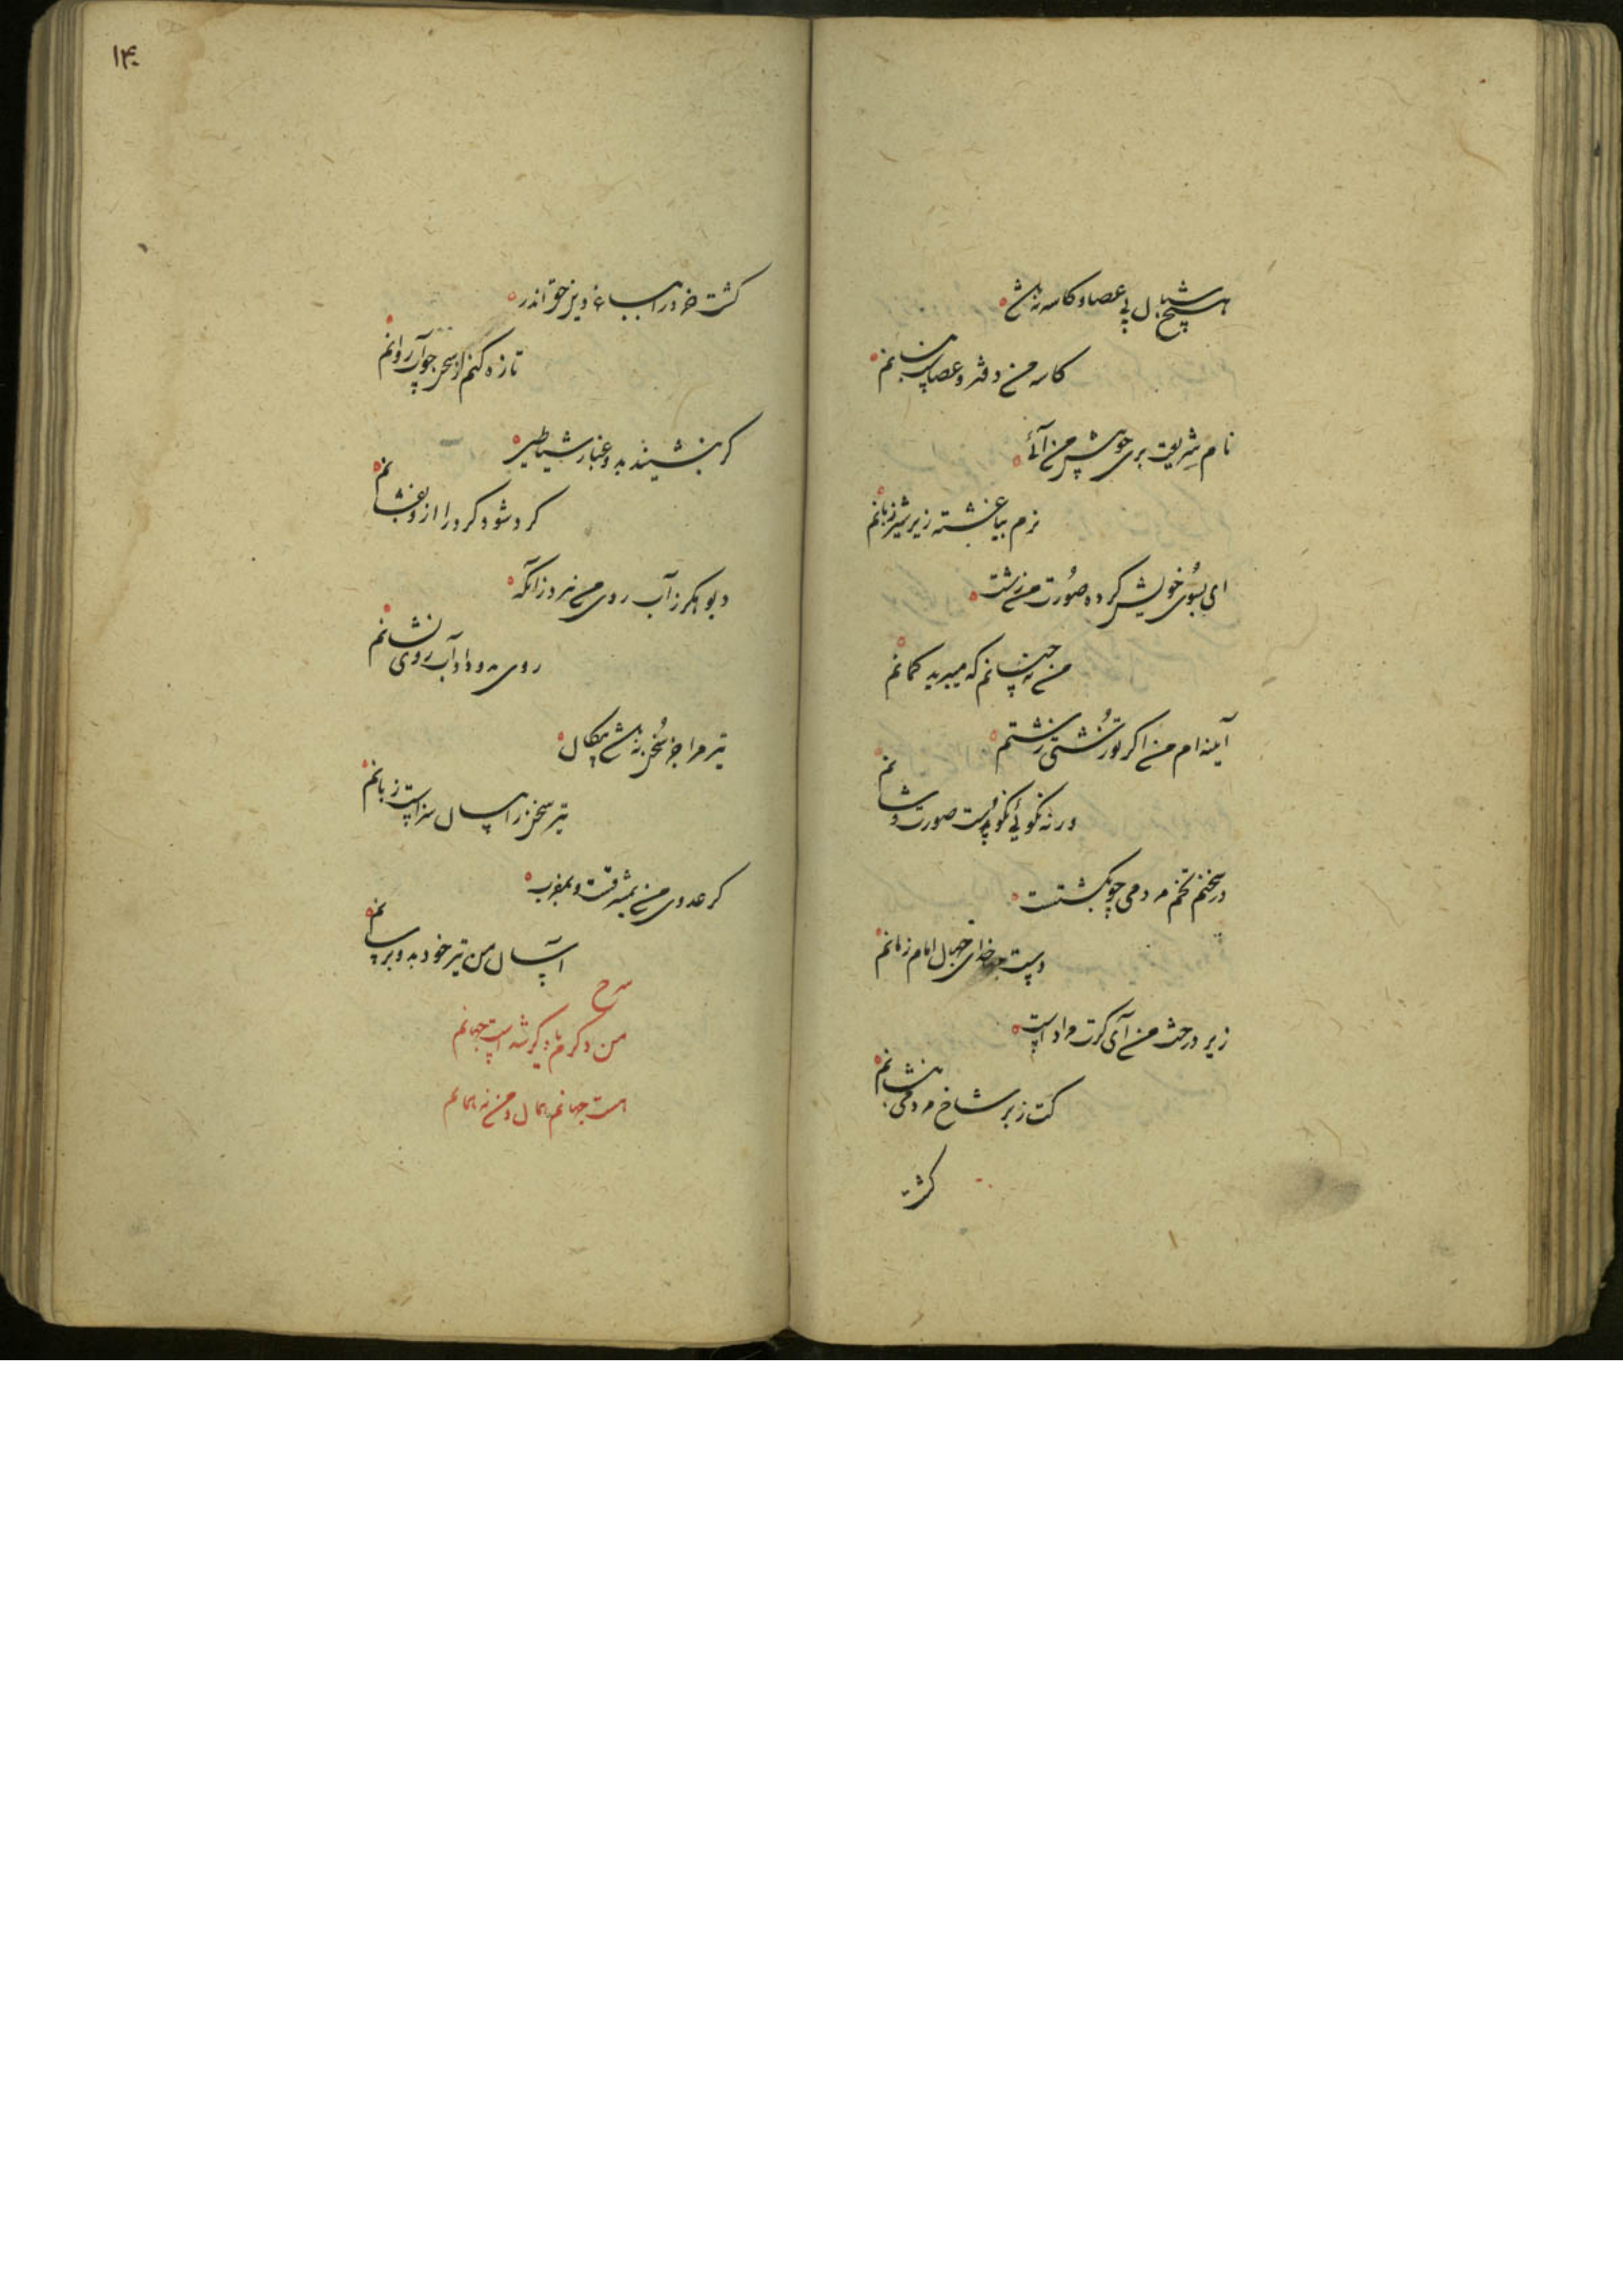 هیچ شبان بی عصا و کاسه نباشد
کاسه من دفتر و عصاست بنانم
نام شریعت بری چو پیش من آئی
نرم بیاغشته زیر شیر زبانم
ای بسوی خویش کرده صورت من زشت
من نه چنانم که میبرید کمانم
آینه ام من اکر تو زشتی زشتم
ور نه نکوئی نکوست صورت و شانم
در سخنم تخم مردمی چو بکشتست
دست خدای جهان امام زمانم
زیر درخت من آی کرت مراد است
کت ز بر شاخ مردمی بنشانم
کشت
کشت خرد را بباغ دین حق اندر
تازه کنم از سخن چو آب روانم
کر بنشیند بدو غبار شیاطین
کرد شود کرد را ازو بفشانم
دیو همکر ز آب روی من نبرد زانکه
روی بدو داد آب روی نشانم
تیر مرا جز سخن نباشد پیکان
تیر سخن را سزاست زبانم
کر عدوی من بمشرقست و بمغرب
آسان من تیر خود بدو برسانم
من دکرم یا دکر شد است جهانم
هست جهانم همان و من نه همانم
۱۴۰